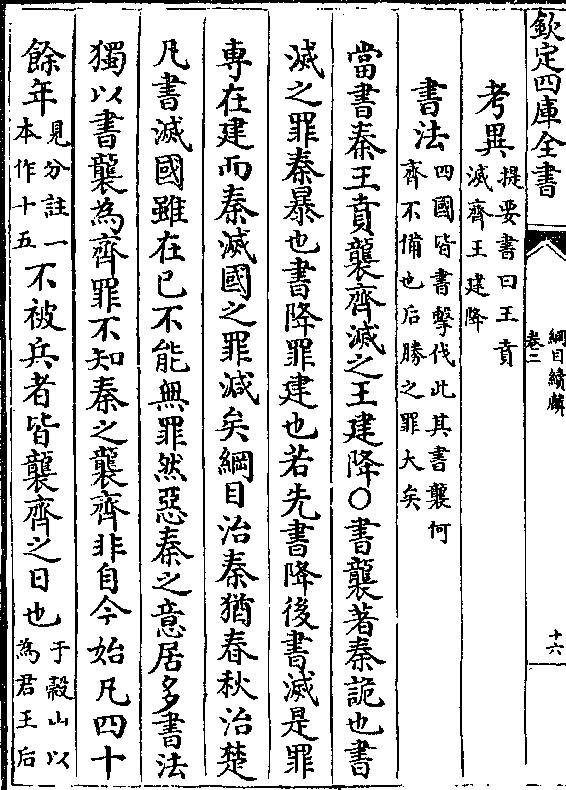 欽定四庫全書
綱目續麟
卷三
十六
考異提要書曰王賁
滅齊王建降
書法四國皆書擊伐此其書襲何
齊不備也后勝之罪大矣
當書秦王賁襲齊滅之王建降○書襲著秦詭也書
滅之罪秦暴也書降罪建也若先書降後書滅是罪
專在建而秦滅國之罪減矣綱目治秦猶春秋治楚
凡書滅國雖在已不能無罪然惡秦之意居多書法
獨以書襲為齊罪不知秦之襲齊非自今始凡四十
餘年見分註一本作十五不被兵者皆襲齊之日也于穀山以為君王后